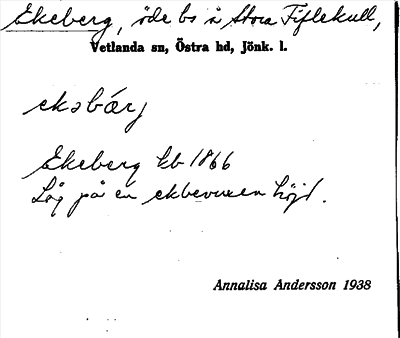 Ekeberg, öde bs å Stora Fiflekull,
Vetlanda sn, Östra hd, Jönk. l.
ekəbárj
Ekeberg kb 1866
Låg på en ekbevuxen höjd.
Annalisa Andersson 1938